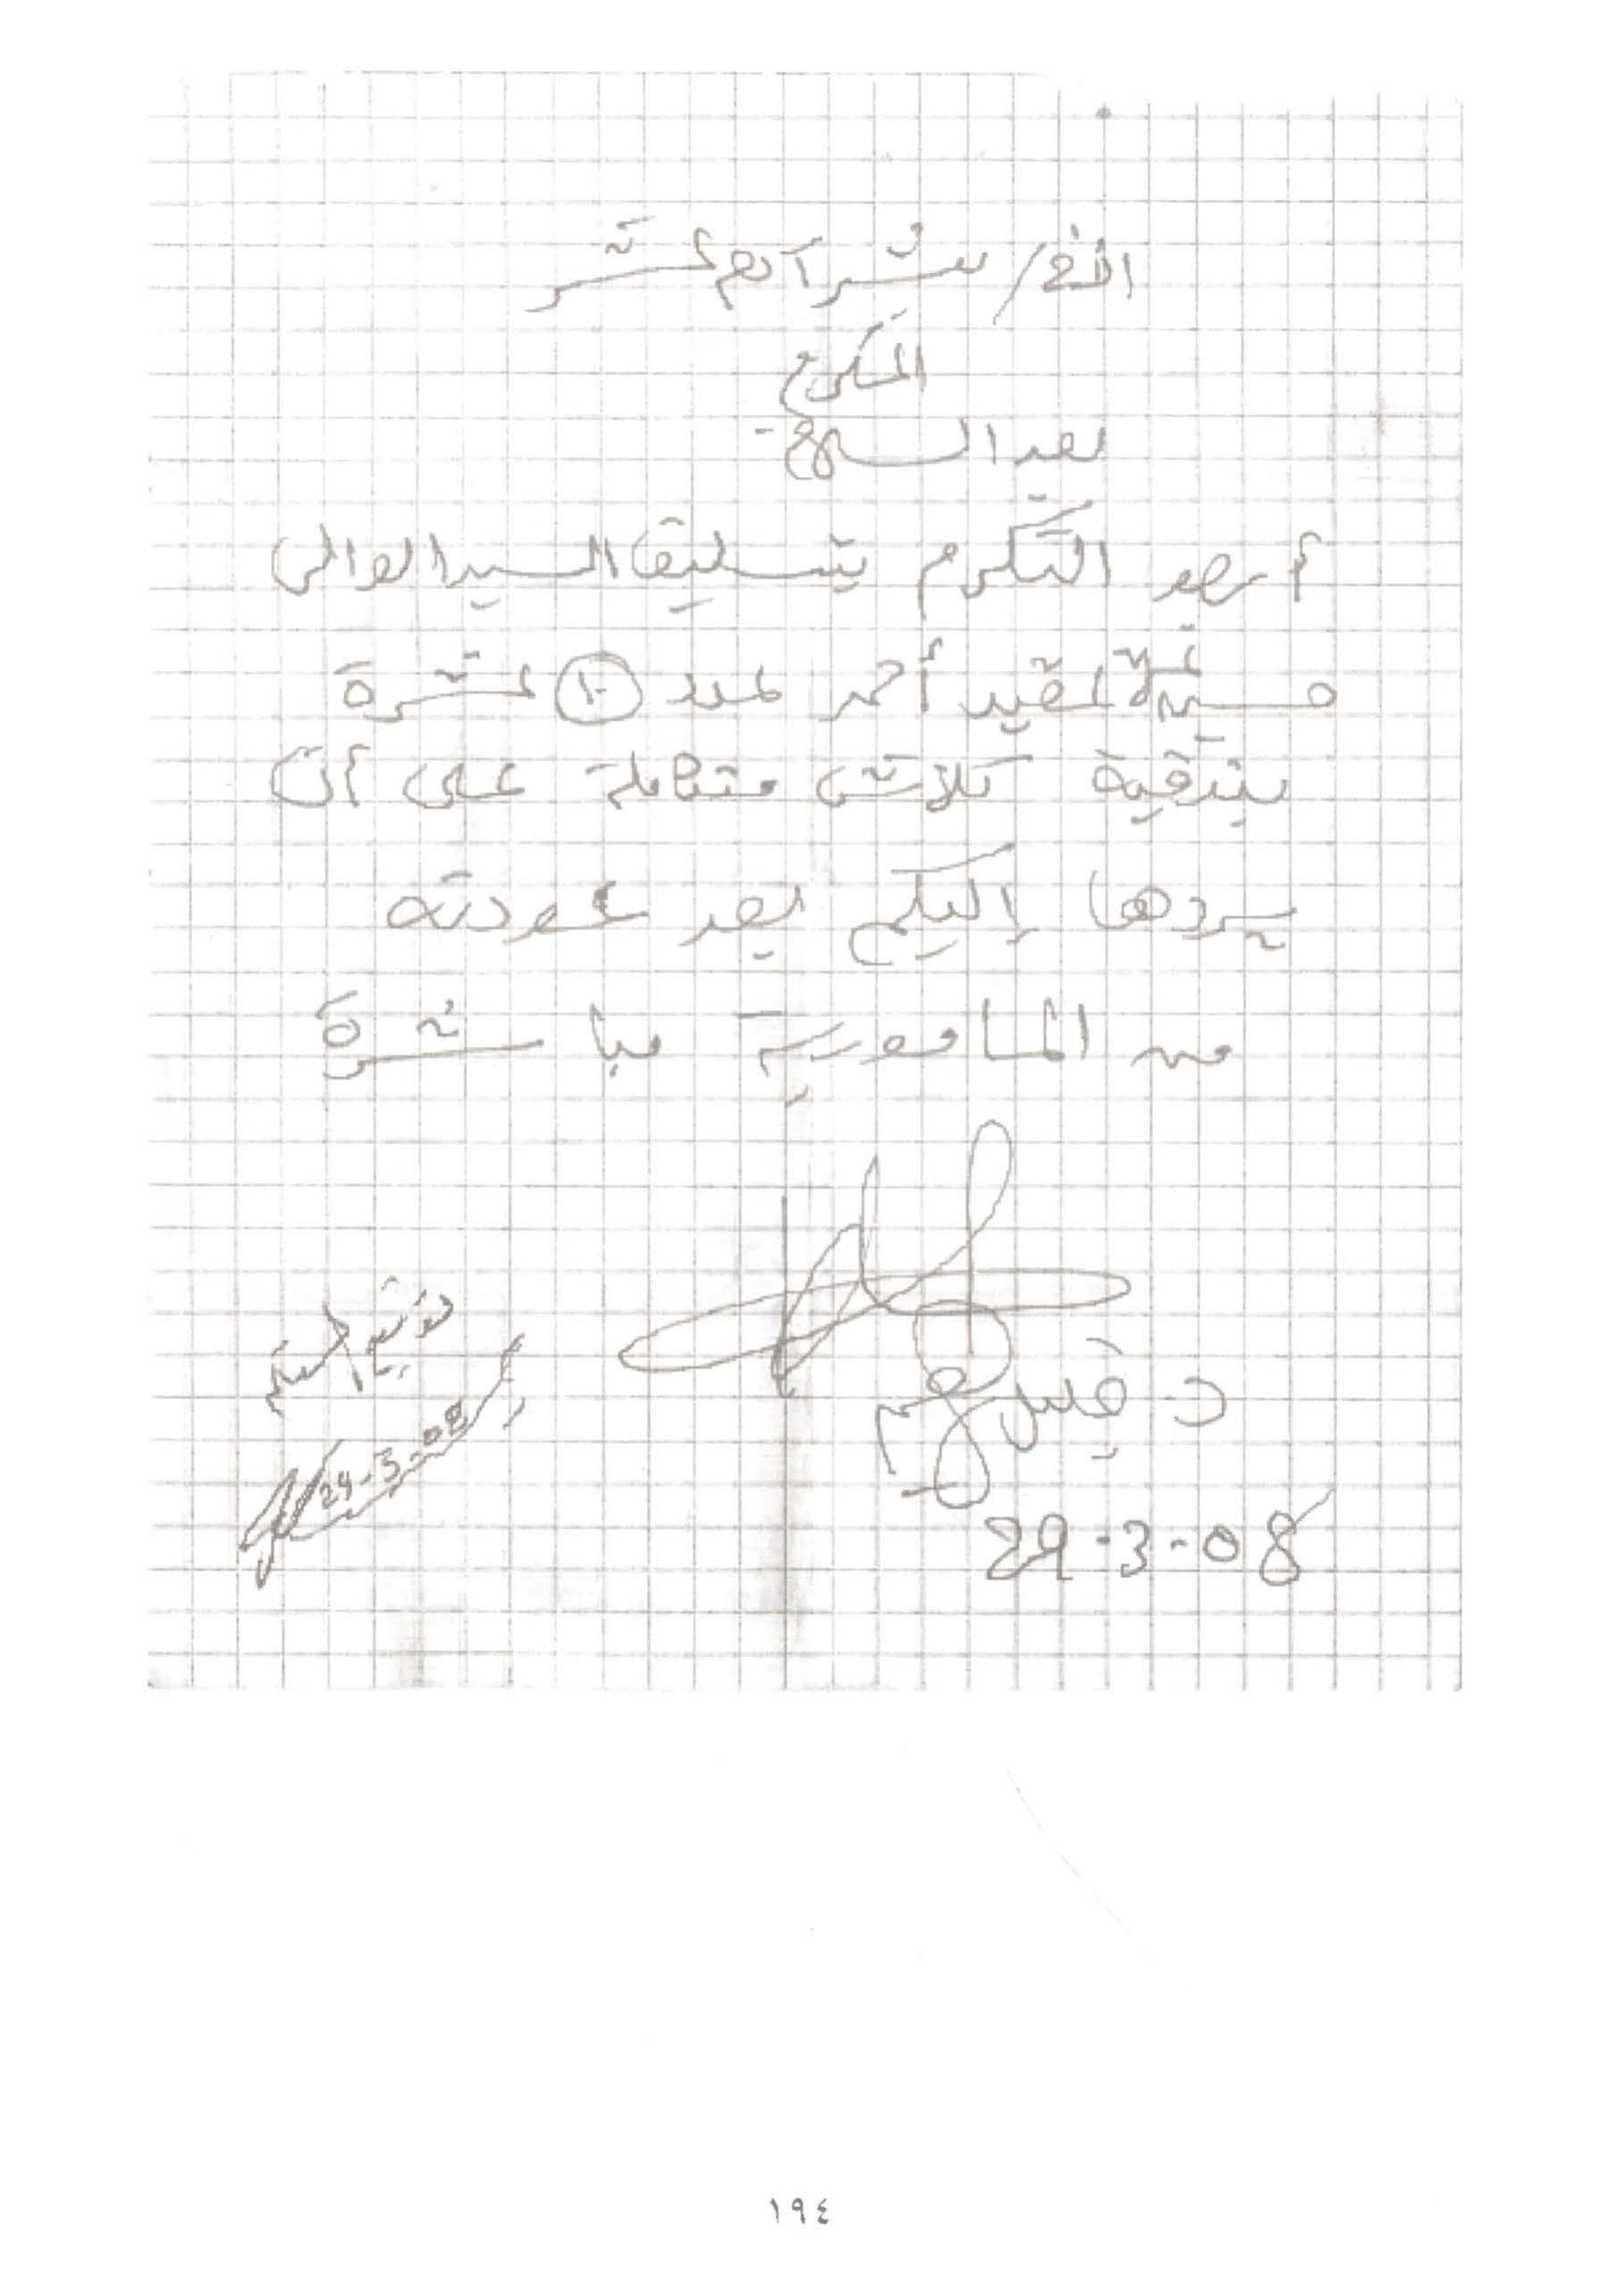 الأخ/ بشرايا حمودي بشر
المكرم
بعد السلام -
أرجو التكرم بتسليف السيد الوالي
عقيد أحمد عدد ١٠ عشرة
بندقية كلاش متكاملة على أن
يردها إليكم بعد عودته
من المامورية مباشرة
د. خليل
29-3-08
توقيع المستلم
29-3-08
١٩٤